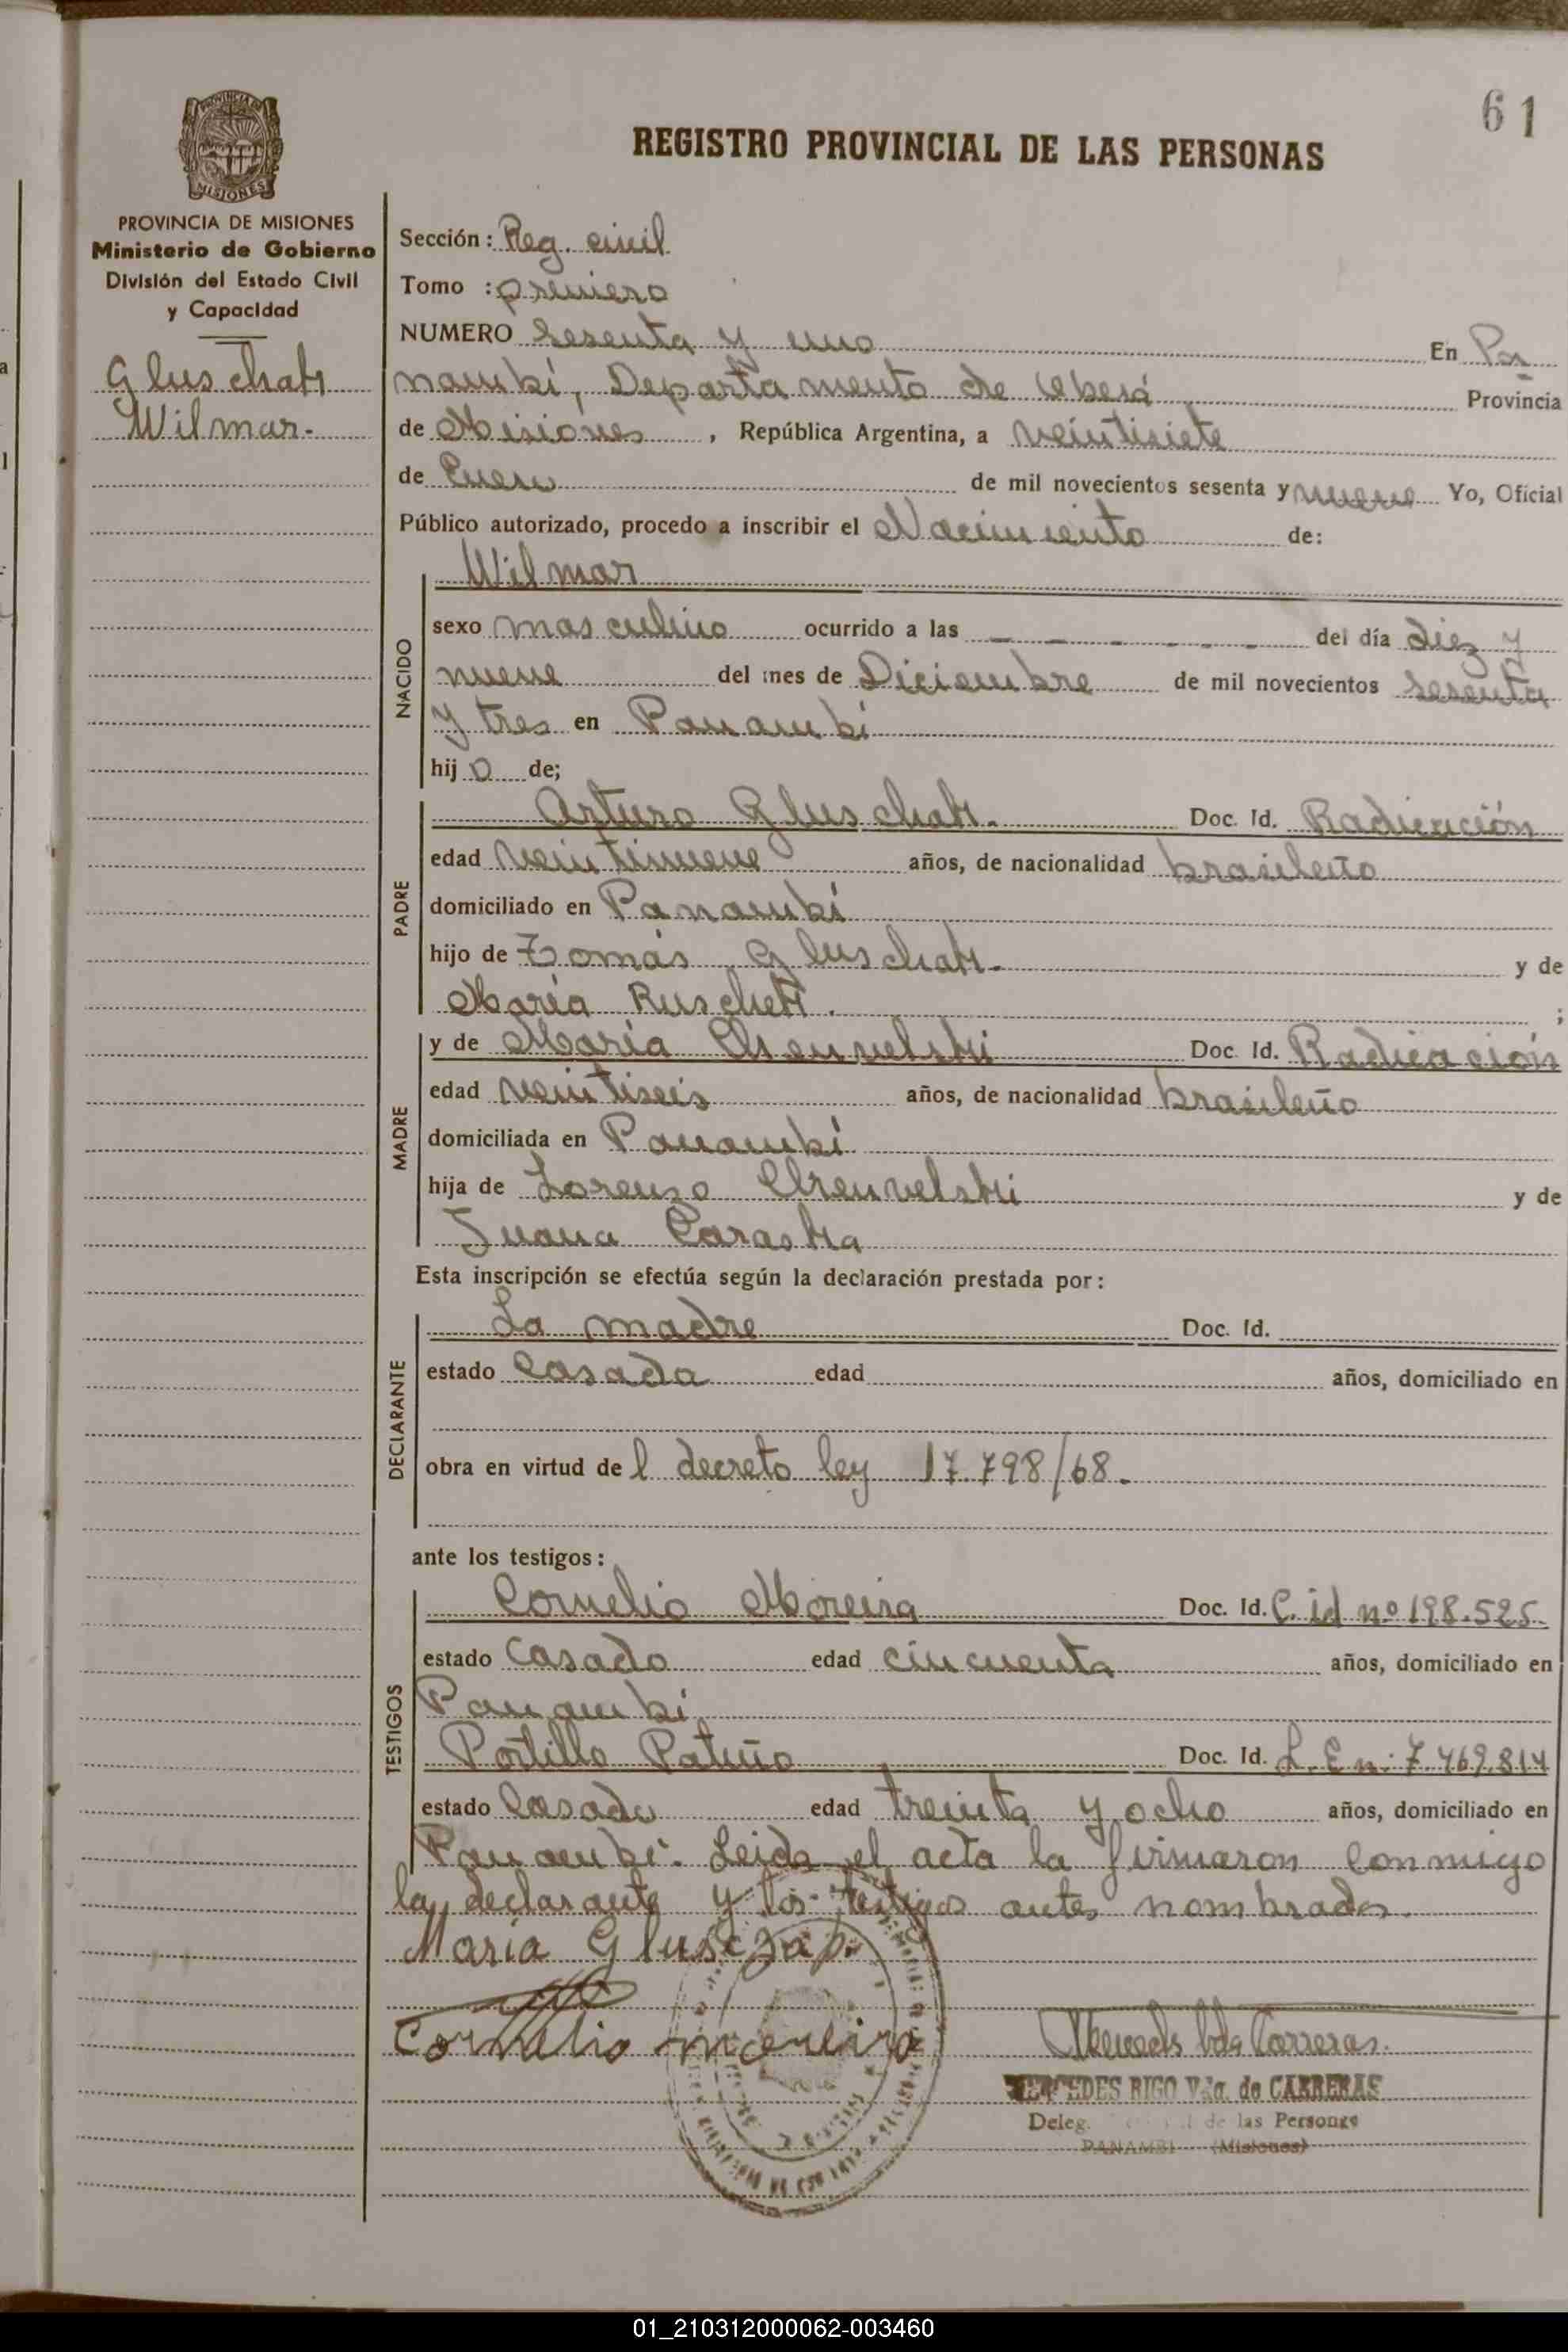 61
REGISTRO PROVINCIAL DE LAS PERSONAS
PROVINCIA DE
MISIONES
PROVINCIA DE MISIONES
Ministerio de Gobierno
División del Estado Civil
y Capacidad
Gluschak
Wilmar.
Sección: Reg. civil
Tomo : primero
NUMERO Sesenta y uno En Pa
nambí, Departamento de Oberá Provincia
de Misiones, República Argentina, a veintisiete
de Enero de mil novecientos sesenta y nueve Yo, Oficial
Público autorizado, procedo a inscribir el Nacimiento de:
NACIDO
Wilmar
sexo masculino ocurrido a las - - - - - - - del día diez y
nueve del mes de Diciembre de mil novecientos sesenta
y tres en Panambí
hijo de;
PADRE
Arturo Gluschak. Doc. Id. Radicación
edad veintinueve años, de nacionalidad brasileño
domiciliado en Panambí
hijo de Tomás Gluschak. y de
María Ruschek. ;
MADRE
y de María Doc. Id. Radicación
edad veintiseis años, de nacionalidad brasileño
domiciliada en Panambí
hija de Lorenzo y de
Juana Caraska
Esta inscripción se efectúa según la declaración prestada por:
DECLARANTE
La madre Doc. Id.
estado Casada edad años, domiciliado en
obra en virtud del decreto ley 17.798/68.
ante los testigos:
TESTIGOS
Cornelio Moreira Doc. Id. C. id nº 198.525
estado Casado edad cincuenta años, domiciliado en
Panambí
Portillo Patiño Doc. Id. L. E n: 7.469.814
estado Casado edad treinta y ocho años, domiciliado en
Panambí. Leida el acta la firmaron conmigo
la declarante y los testigos antes nombrados.
María Glusczap
Cornelio moreira
Mercedes Vda Carreras.
MERCEDES RIGO Vda. de CARRERAS
Deleg. de las Personas
PANAMBI (Misiones)
01_210312000062-003460